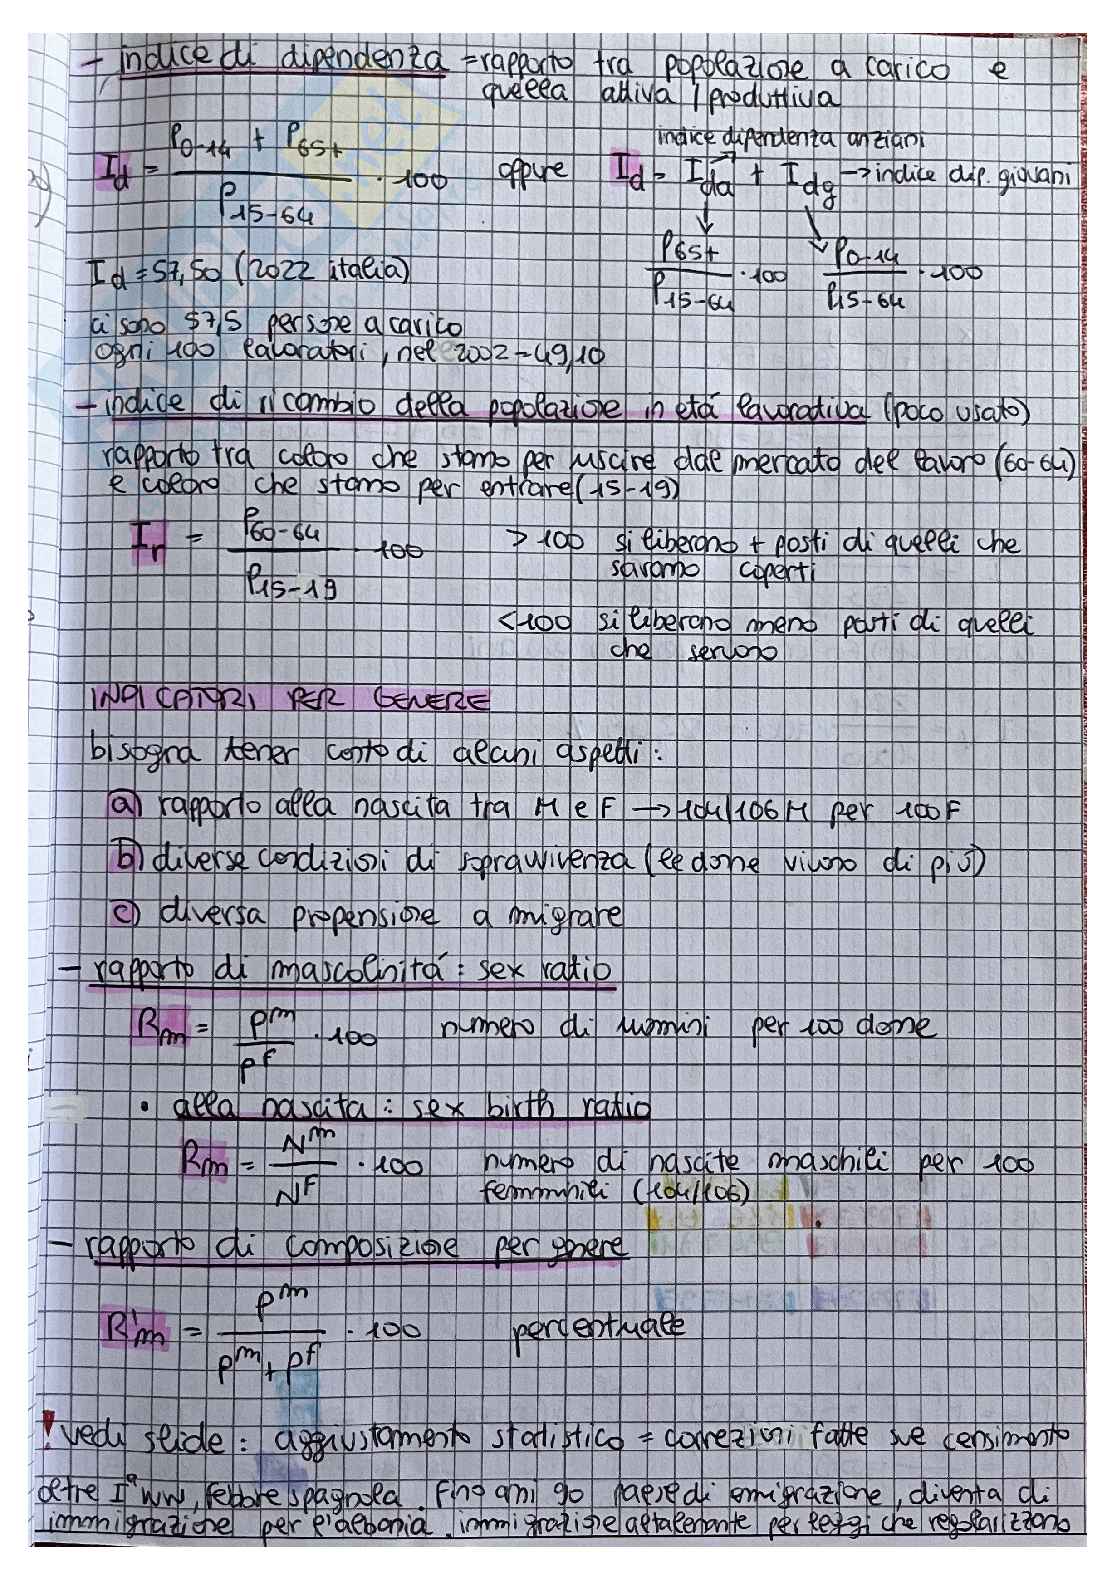 - indice di dipendenza = rapporto tra popolazione a carico e
quella attiva / produttiva
indice dipendenza anziani
Id = P0-14 + P65+ / P15-64 · 100 oppure Id = Ida + Idg → indice dip. giovani
P65+ / P15-64 · 100 P0-14 / P15-64 · 100
Id = 57,50 (2022 italia)
ci sono 57,5 persone a carico
ogni 100 lavoratori, nel 2002 = 49,10
- indice di ricambio della popolazione in etá lavorativa (poco usato)
rapporto tra coloro che stanno per uscire dal mercato del lavoro (60-64)
e coloro che stanno per entrare (15-19)
Ir = P60-64 / P15-19 · 100 > 100 si liberano + posti di quelli che
saranno coperti
<100 si liberano meno posti di quelli
che servono
INDICATORI PER GENERE
bisogna tener conto di alcuni aspetti:
a) rapporto alla nascita tra M e F → 104/106 M per 100 F
b) diverse condizioni di sopravvivenza (le donne vivono di piú)
c) diversa propensione a migrare
- rapporto di mascolinitá: sex ratio
Rm = Pm / Pf · 100 numero di uomini per 100 donne
• alla nascita: sex birth ratio
Rm = Nm / NF · 100 numero di nascite maschili per 100
femminili (104/106)
- rapporto di composizione per genere
R'm = Pm / Pm + Pf · 100 percentuale
! vedi slide: aggiustamento statistico = correzioni fatte sul censimento
oltre Iª WW, febbre spagnola. Fino anni 90 paese di emigrazione, diventa di
immigrazione per l'albania. immigrazione altalenante per leggi che regolarizzano